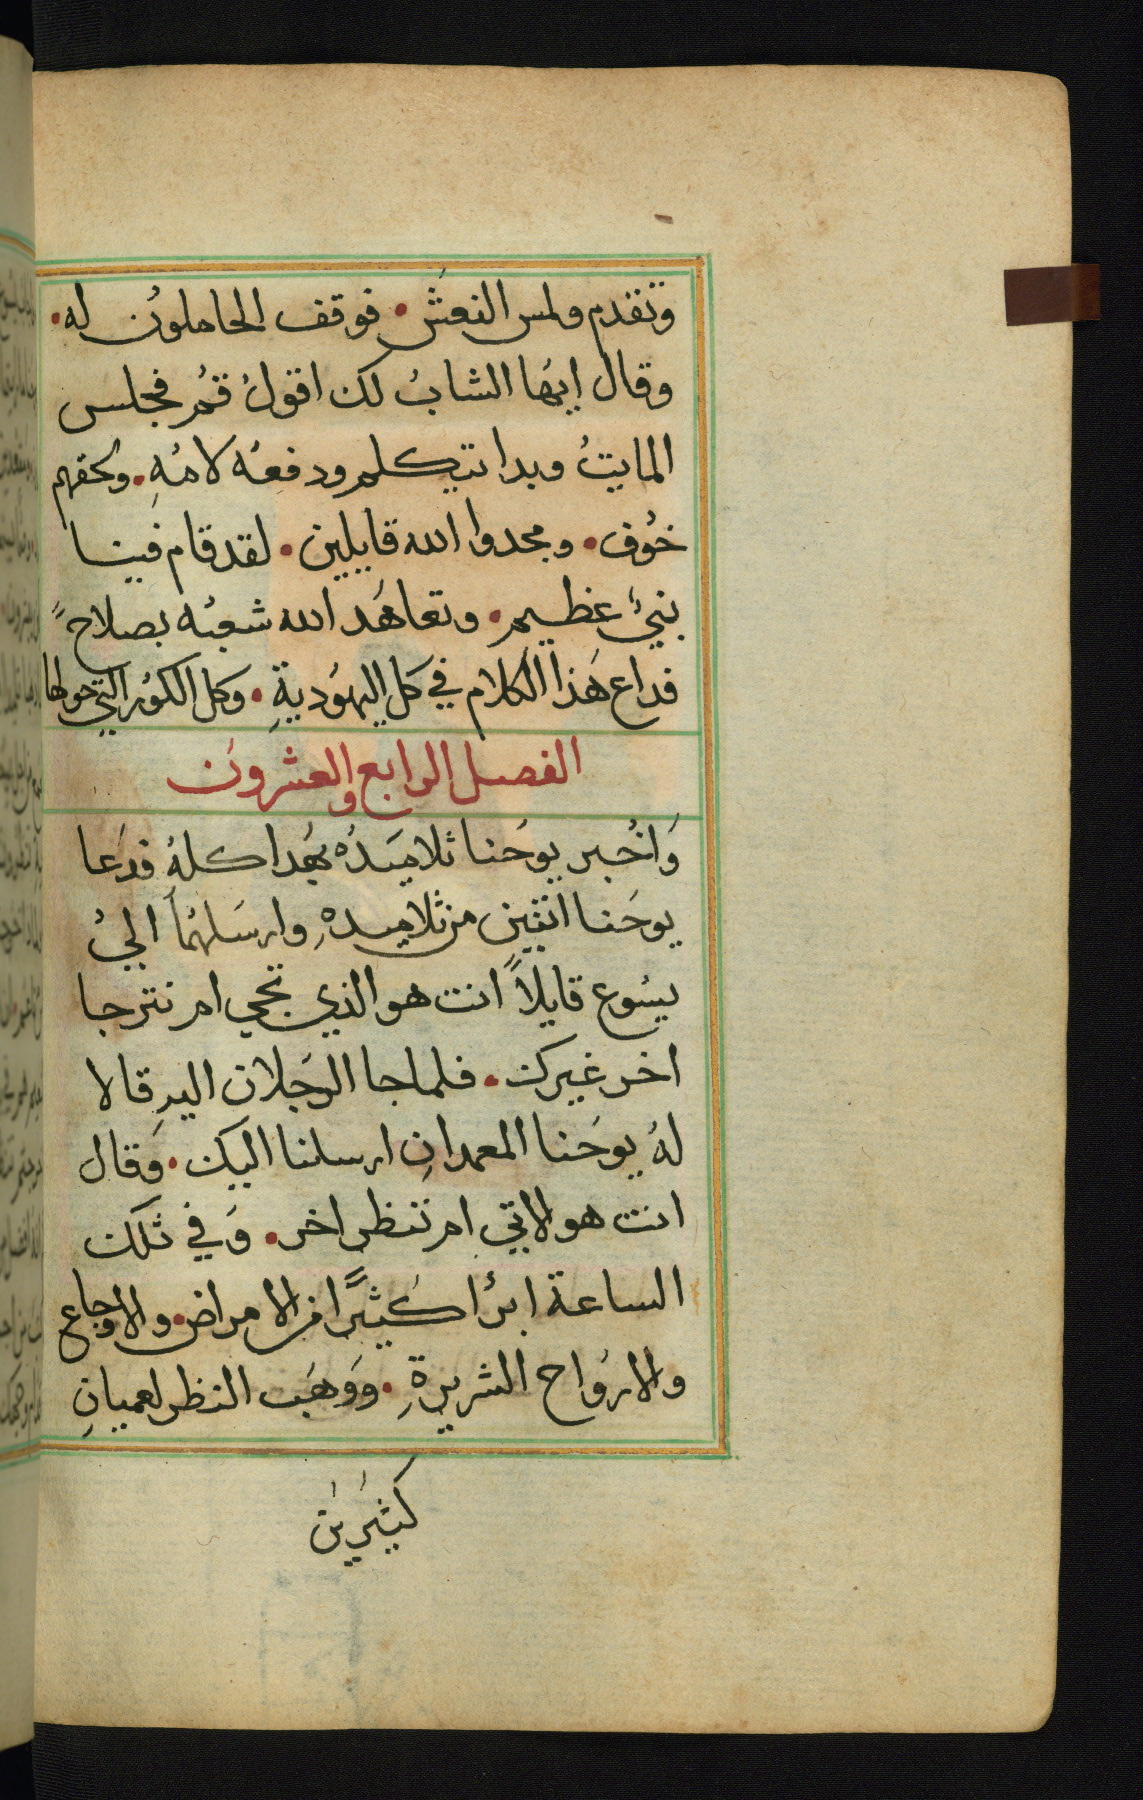 وتقدم ولمس النعش • فوقف الحاملون له •
وقال ايها الشاب لك اقول قم فجلس
المايت وبدا يتكلم ودفعه لامه • ولحقهم
خوف • ومجدوا الله قايلين • لقد قام فينا
نبي عظيم • وتعاهد الله شعبه بصلاح
فداع هذا الكلام في كل اليهودية • وكل الكور التي حولها
الفصل الرابع والعشرون
واخبر يوحنا تلاميده بهدا كله فدعا
يوحنا اثنين من تلاميده وارسلهما الي
يسوع قايلا انت هو الذي تجي ام نترجا
اخر غيرك • فلما جا الرجلان اليه قالا
له يوحنا المعمدان ارسلنا اليك • وقال
انت هو الاتي ام ننتظر اخر • وفي تلك
الساعة ابرا كثيرا من الامراض • والاوجاع
والارواح الشريرة • ووهب النظر لعميان
كثيرين